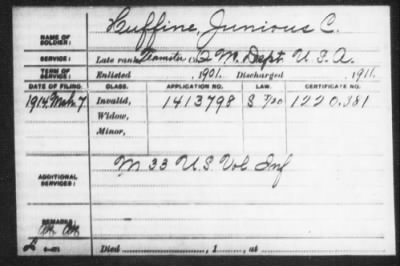 NAME OF SOLDIER: Huffine, Junious C.
SERVICE: Late rank Teamster Co. Q M. Dept. U.S.A.
TERM OF SERVICE: Enlisted , 1901. Discharged , 1911.
DATE OF FILING. CLASS. APPLICATION NO. LAW. CERTIFICATE NO.
1914 Mch. 7 Invalid, 1413798 1220,381
Widow,
Minor,
ADDITIONAL SERVICES: M 33 U.S. Vol Inf
REMARKS:
Died , 1 , at